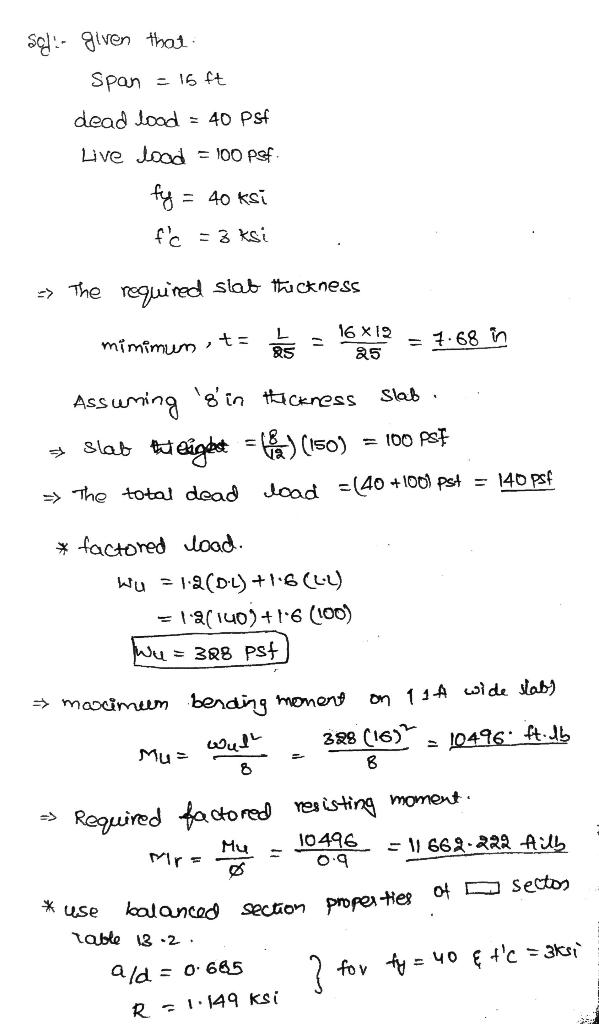 Sol:- given that.
Span = 16 ft
dead load = 40 Psf
Live load = 100 psf.
fy = 40 ksi
f'c = 3 ksi
=> The required slab thickness
mimimum, t = L/25 = 16 x 12/25 = 7.68 in
Assuming '8' in thickness slab.
=> slab weight = (8/12) (150) = 100 PSF
=> The total dead load = (40 + 100) psf = 140 psf
* factored load.
Wu = 1.2(D.L) + 1.6(L.L)
= 1.2(140) + 1.6 (100)
Wu = 328 PSf
=> maximum bending moment on 1 ft wide slab)
Mu = wul²/8 = 328 (16)²/8 = 10496. ft.lb
=> Required factored resisting moment.
Mr = Mu/ø = 10496/0.9 = 11662.222 ft.lb
* use balanced section properties of ▭ section
Table 13.2.
a/d = 0.685 } for fy = 40 & f'c = 3ksi
R = 1.149 ksi